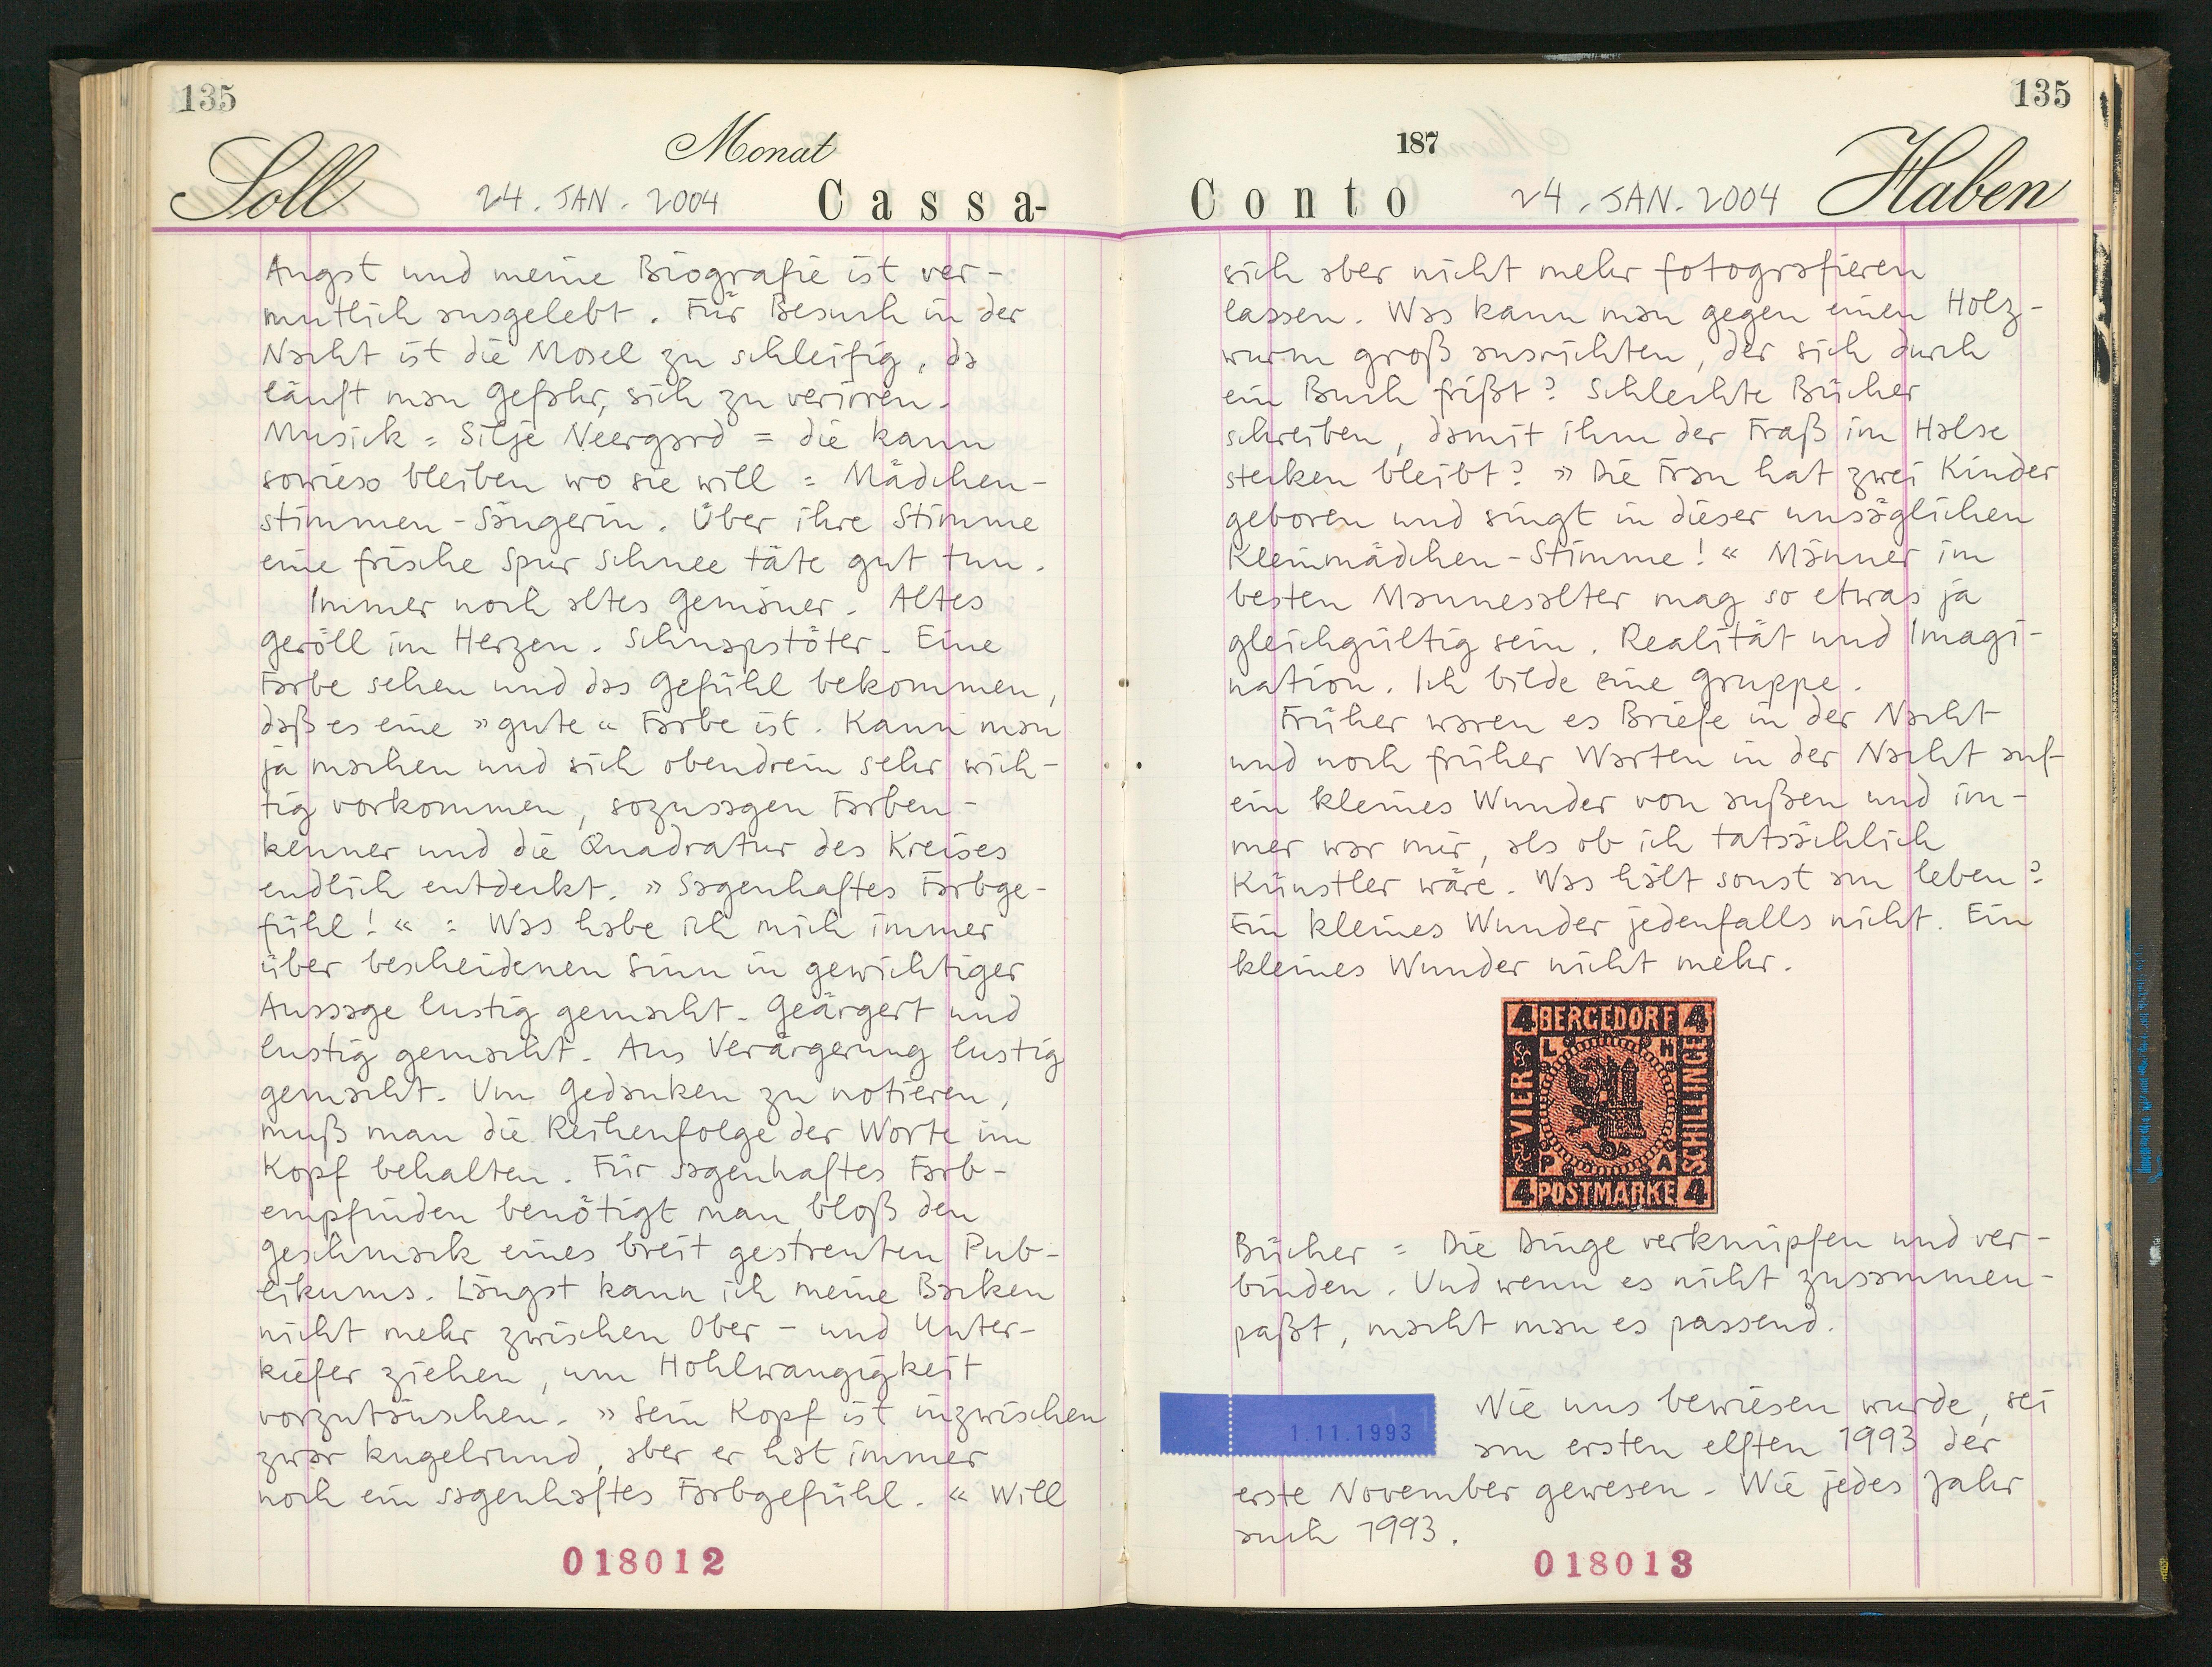 135
Soll
Monat
24. JAN. 2004
Cassa-
Angst und meine Biografie ist ver-
mutlich ausgelebt. Für Besuch in der
Nacht ist die Mosel zu schleifig, da
läuft man Gefahr, sich zu verirren.
Musick = Silje Neergard = die kann
sowieso bleiben wo sie will = Mädchen-
stimmen-Sängerin. Über ihre Stimme
eine frische Spur Schnee täte gut tun.
Immer noch altes Gemäuer. Altes
Geröll im Herzen. Schnapstöter. Eine
Farbe sehen und das Gefühl bekommen,
daß es eine »gute« Farbe ist. Kann man
ja machen und sich obendrein sehr wich-
tig vorkommen, sozusagen Farben-
kenner und die Quadratur des Kreises
endlich entdeckt. »Sagenhaftes Farbge-
fühl!« = Was habe ich mich immer
über bescheidenen Sinn in gewichtiger
Aussage lustig gemacht. Geärgert und
lustig gemacht. Aus Verärgerung lustig
gemacht. Um Gedanken zu notieren,
muß man die Reihenfolge der Worte im
Kopf behalten. Für sagenhaftes Farb-
empfinden benötigt man bloß den
Geschmack eines breit gestreuten Pub-
likums. Längst kann ich meine Backen
nicht mehr zwischen Ober- und Unter-
kiefer ziehen, um Hohlwangigkeit
vorzutäuschen. »Sein Kopf ist inzwischen
zwar kugelrund, aber er hat immer
noch ein sagenhaftes Farbgefühl.« Will
018012
135
187
Conto
24. JAN. 2004
Haben
sich aber nicht mehr fotografieren
lassen. Was kann man gegen einen Holz-
wurm groß ausrichten, der sich durch
ein Buch frißt? Schlechte Bücher
schreiben, damit ihm der Fraß im Halse
stecken bleibt? »Die Frau hat zwei Kinder
geboren und singt in dieser unsäglichen
Kleinmädchen-Stimme!« Männer im
besten Mannesalter mag so etwas ja
gleichgültig sein. Realität und Imagi-
nation. Ich bilde eine Gruppe.
Früher waren es Briefe in der Nacht
und noch früher Warten in der Nacht auf
ein kleines Wunder von außen und im-
mer war mir, als ob ich tatsächlich
Künstler wäre. Was hält sonst am leben?
Ein kleines Wunder jedenfalls nicht. Ein
kleines Wunder nicht mehr.
4 BERGEDORF 4
L H
VIER
SCHILLINGE
P A
4 POSTMARKE 4
Bücher = Die Dinge verknüpfen und ver-
binden. Und wenn es nicht zusammen-
paßt, macht man es passend.
1.11.1993
Wie uns bewiesen wurde, sei
am ersten elften 1993 der
erste November gewesen. Wie jedes Jahr
auch 1993.
018013